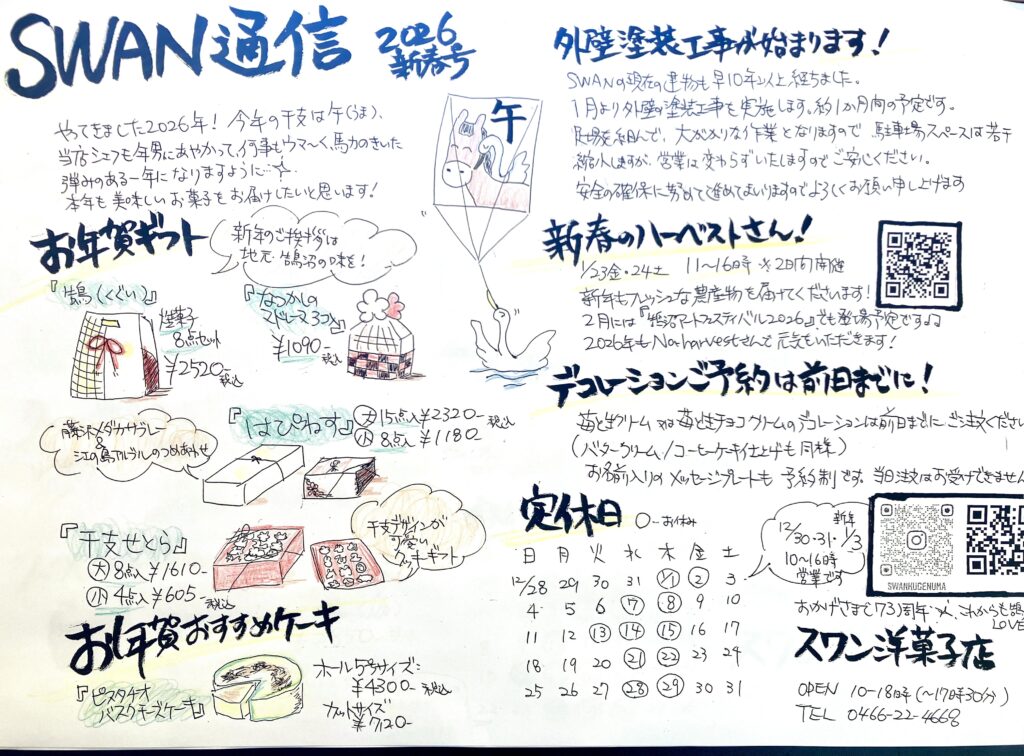 SWAN通信 2026 新春号
やってきました2026年! 今年の干支は午(うま)、
当店シェフも年男にあやかって、何事もウマ〜く、馬力のきいた
弾みのある一年になりますように…
本年も美味しいお菓子をお届けしたいと思います!
午
お年賀ギフト
新年のご挨拶は
地元・鵠沼の味を!
『鵠(くぐい)』
焼菓子
8点セット
¥2520-税込
『なつかしの
マドレーヌ3コ入』
¥1090-税込
『はぴねす』
大 15点入¥2320-
小 8点入¥1180-税込
藤沢メダカサブレー
&
江の島アルブルのつめあわせ
『干支せとら』
大 8点入¥1610-
小 4点入¥605-税込
干支デザインが
可愛い
クッキーギフト
お年賀おすすめケーキ
『ピスタチオ
バスクチーズケーキ』
ホール5号サイズ:
¥4300-税込
カットサイズ
¥720-
外壁塗装工事が始まります!
SWANの現在の建物も早10年以上経ちました。
1月より外壁の塗装工事を実施します。約1か月間の予定です。
足場を組んで、大がかりな作業となりますので、駐車場スペースは若干
縮小しますが、営業は変わらずいたしますのでご安心ください。
安全の確保に努めて進めてまいりますのでよろしくお願い申し上げます
新春のハーベストさん!
1/23金・24土 11〜16時 ※2日間開催
新年もフレッシュな農産物を届けてくださいます!
2月には『鵠沼アートフェスティバル2026』でも登場予定です♪
2026年もNo.harvestさんで元気をいただきます!
デコレーションご予約は前日までに!
苺と生クリーム 又は 苺と生チョコクリームのデコレーションは前日までにご注文ください
(バタークリーム/コーヒーケーキ仕上げも同様)
お名前入りのメッセージプレートも予約制です。当日注文はお受けできません
定休日 ○…お休み
日 月 火 水 木 金 土
12/28 29 30 31 1/1 2 3
4 5 6 7 8 9 10
11 12 13 14 15 16 17
18 19 20 21 22 23 24
25 26 27 28 29 30 31
新年
12/30・31・1/3
10〜16時
営業です
SWANKUGENUMA
おかげさまで73周年 これからも鵠
LOVE
スワン洋菓子店
OPEN 10-18時(〜17時30分)
TEL 0466-22-4668